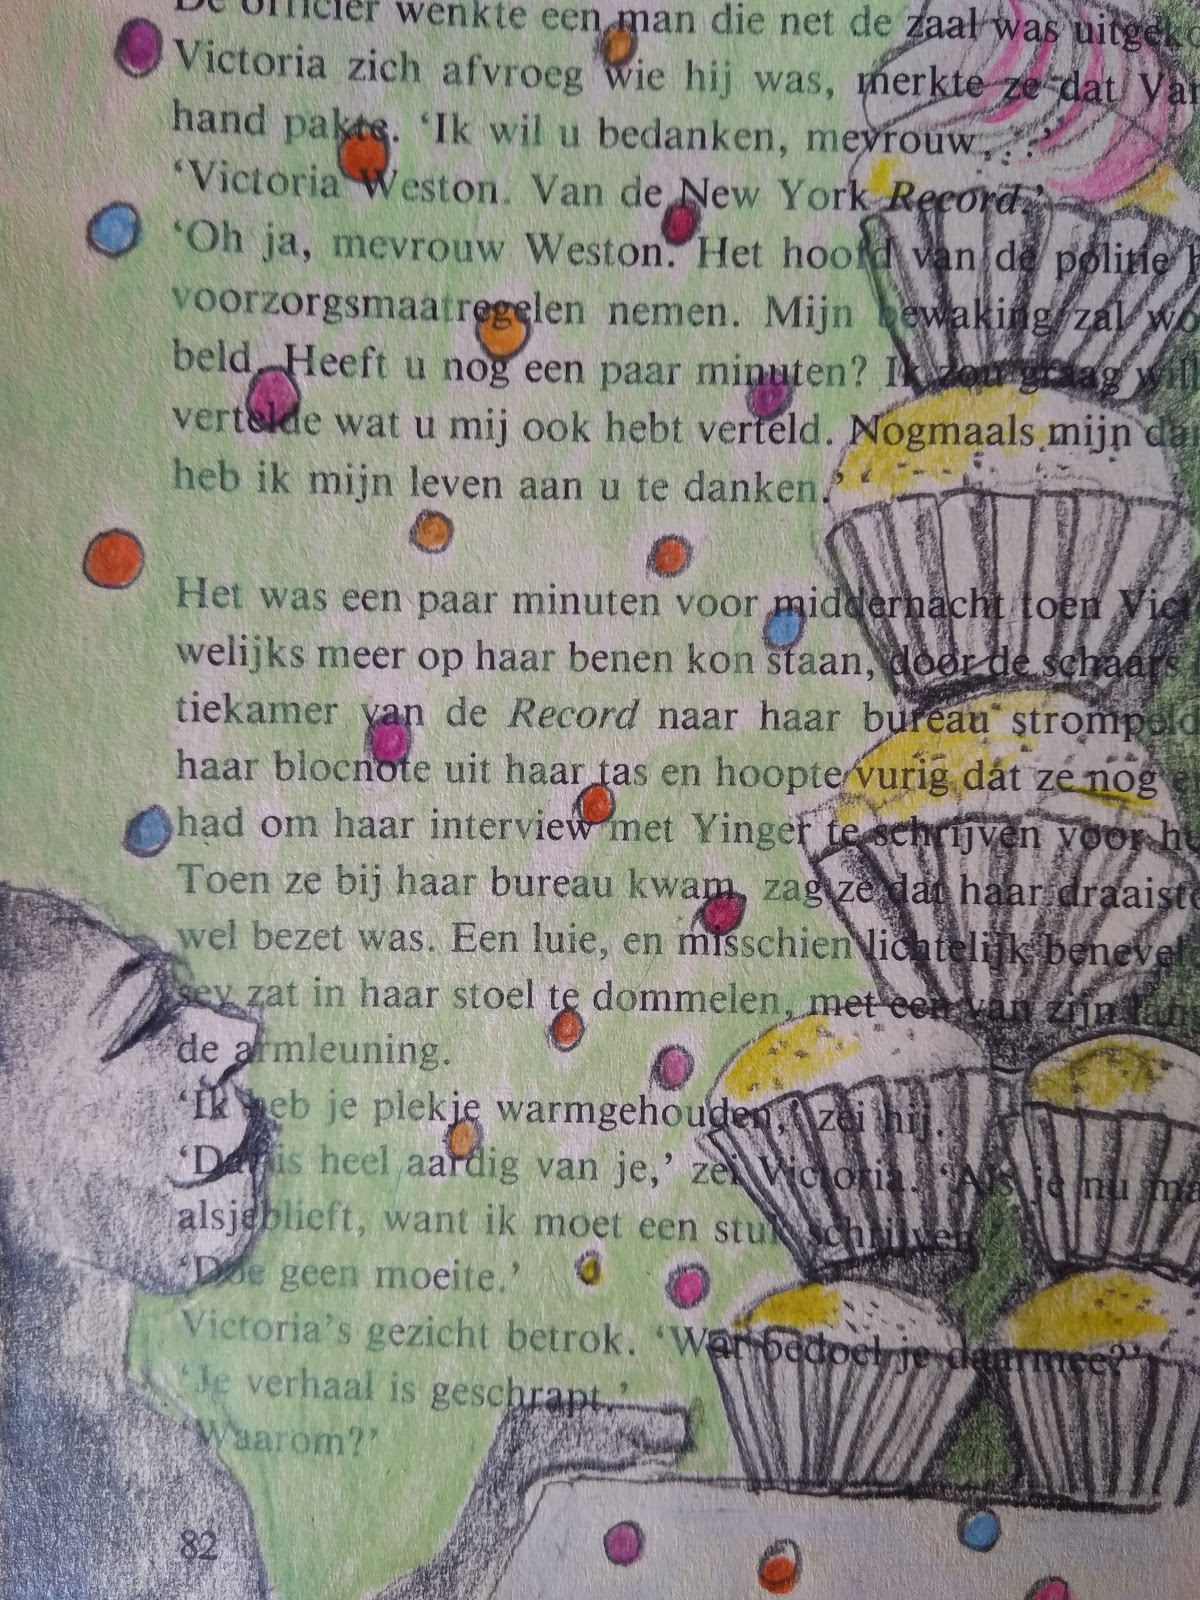 De officier wenkte een man die net de zaal was
Victoria zich afvroeg wie hij was, merkte ze dat
hand pakte. ‘Ik wil u bedanken, mevrouw. . .’
‘Victoria Weston. Van de New York Record.’
‘Oh ja, mevrouw Weston. Het hoofd van de politie
voorzorgsmaatregelen nemen. Mijn bewaking zal
beld. Heeft u nog een paar minuten? Ik zou graag
vertelde wat u mij ook hebt verteld. Nogmaals mijn
heb ik mijn leven aan u te danken.’
Het was een paar minuten voor middernacht toen
welijks meer op haar benen kon staan, door de
tiekamer van de Record naar haar bureau
haar blocnote uit haar tas en hoopte vurig dat ze nog
had om haar interview met Yinger te schrijven voor
Toen ze bij haar bureau kwam, zag ze dat haar
wel bezet was. Een luie, en misschien lichtelijk
sey zat in haar stoel te dommelen, met een van zijn
de armleuning.
‘Ik heb je plekje warmgehouden,’ zei hij.
‘Dat is heel aardig van je,’ zei Victoria. ‘Als je nu
alsjeblieft, want ik moet een stuk schrijven.
‘Doe geen moeite.’
Victoria’s gezicht betrok. ‘Wat bedoel je daarmee?’
‘Je verhaal is geschrapt.’
‘Waarom?’
82